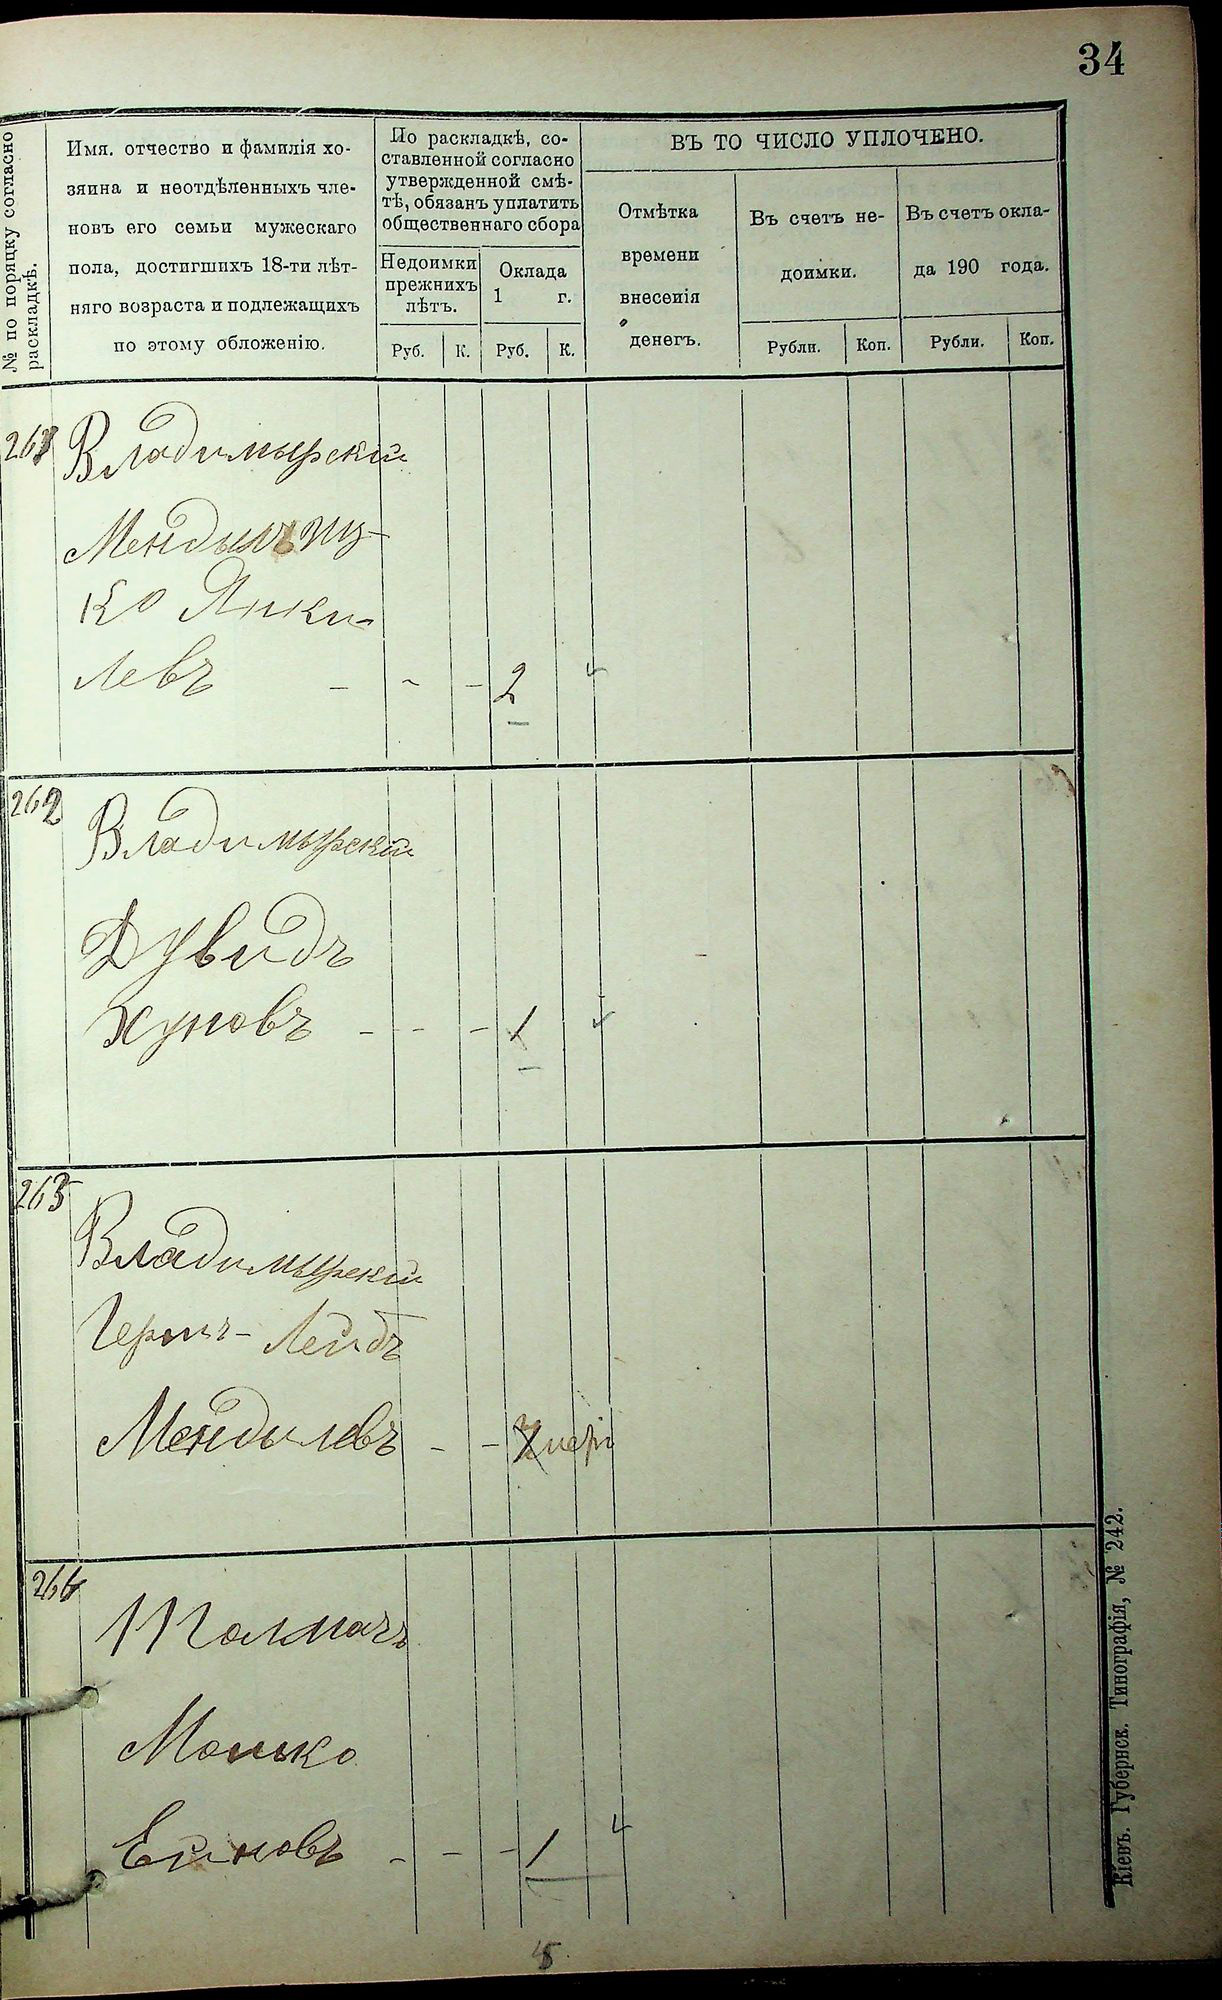 34
№ по поряцку согласно
раскладкѣ.
Имя. отчество и фамилія хо-
зяина и неотдѣленныхъ чле-
новъ его семьи мужескаго
пола, достигшихъ 18-ти лѣт-
няго возраста и подлежащихъ
по этому обложенію.
По раскладкѣ, со-
ставленной согласно
утвержденной смѣ-
тѣ, обязанъ уплатить
общественнаго сбора
Недоимки
прежнихъ
лѣтъ.
Оклада
1 г.
Руб. К. Руб. К.
ВЪ ТО ЧИСЛО УПЛОЧЕНО.
Отмѣтка
времени
внесенія
денегъ.
Въ счетъ не-
доимки.
Рубли. Коп.
Въ счетъ окла-
да 190 года.
Рубли. Коп.
261
Владимырскій
Мендыль Иц-
ко Янки-
левъ - - - 2
262
Владимырскій
Дувидъ
Хуновъ - - - 1
263
Владимырскій
Герш- Лейбъ
Мендылевъ - -
264
Толмачъ
Мошко
Ейновъ - - - 1
Кіевъ. Губернск. Типографія, № 242.